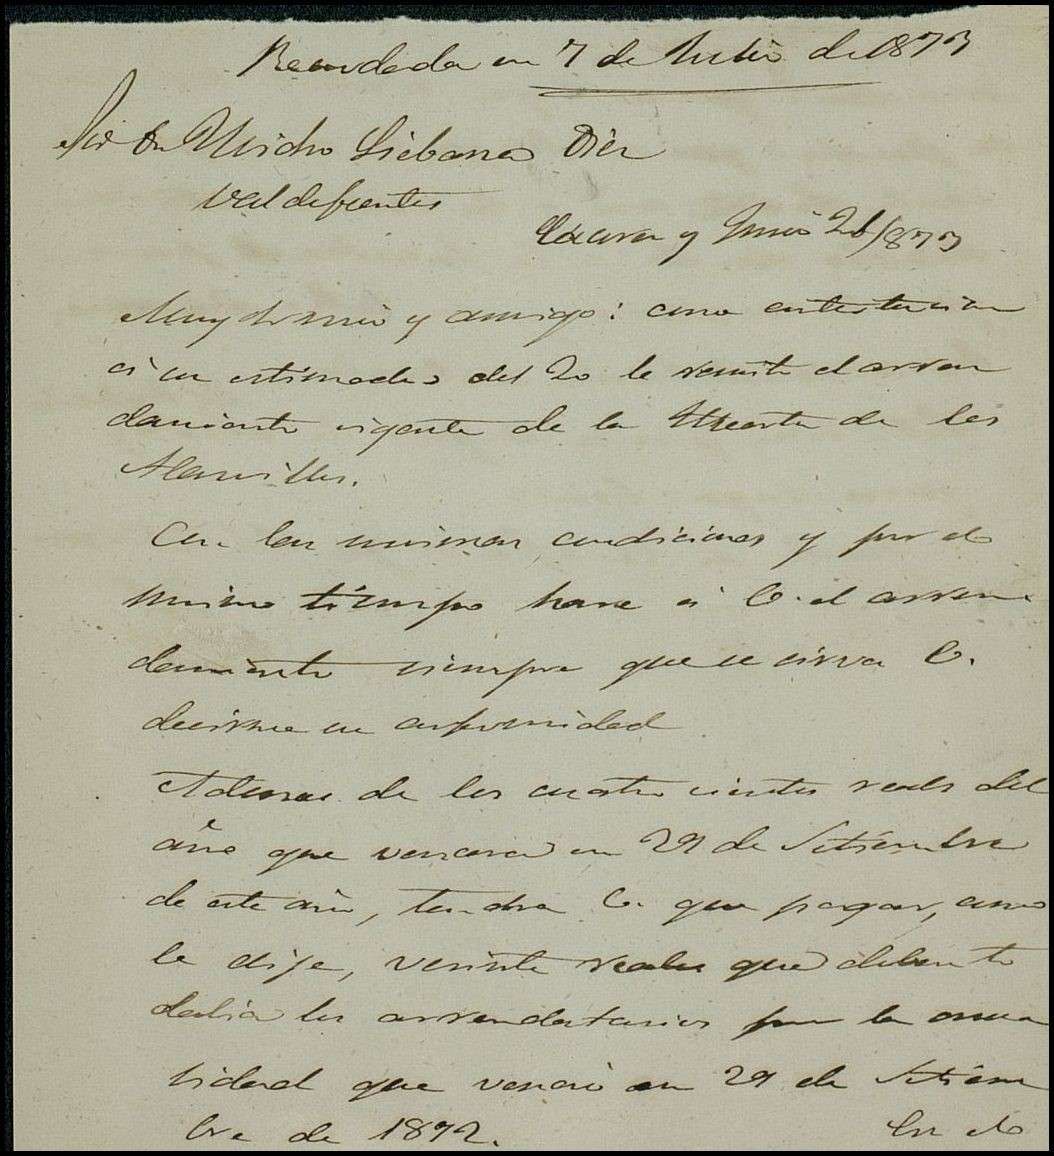 en 7 de Julio de 1873
Sor Dn Liebana Diez
Valdefuentes
Caceres y Junio 26/873
Muy Sr mio y amigo: como contestacion
á su estimada del 20 le remito el arren
damiento vigente de la Huerta de los
Con las mismas condiciones y por el
mismo tiempo hare á V. el arren
damiento siempre que se sirva V.
decirme su conformidad
Ademas de los cuatrocientos reales del
año que vencera en 29 de Setiembre
de este año, tendra V. que pagar, como
le dije, veinte reales que deben to
dabia los arrendatarios por la anua
lidad que vencio en 29 de Setiem
bre de 1872. En el